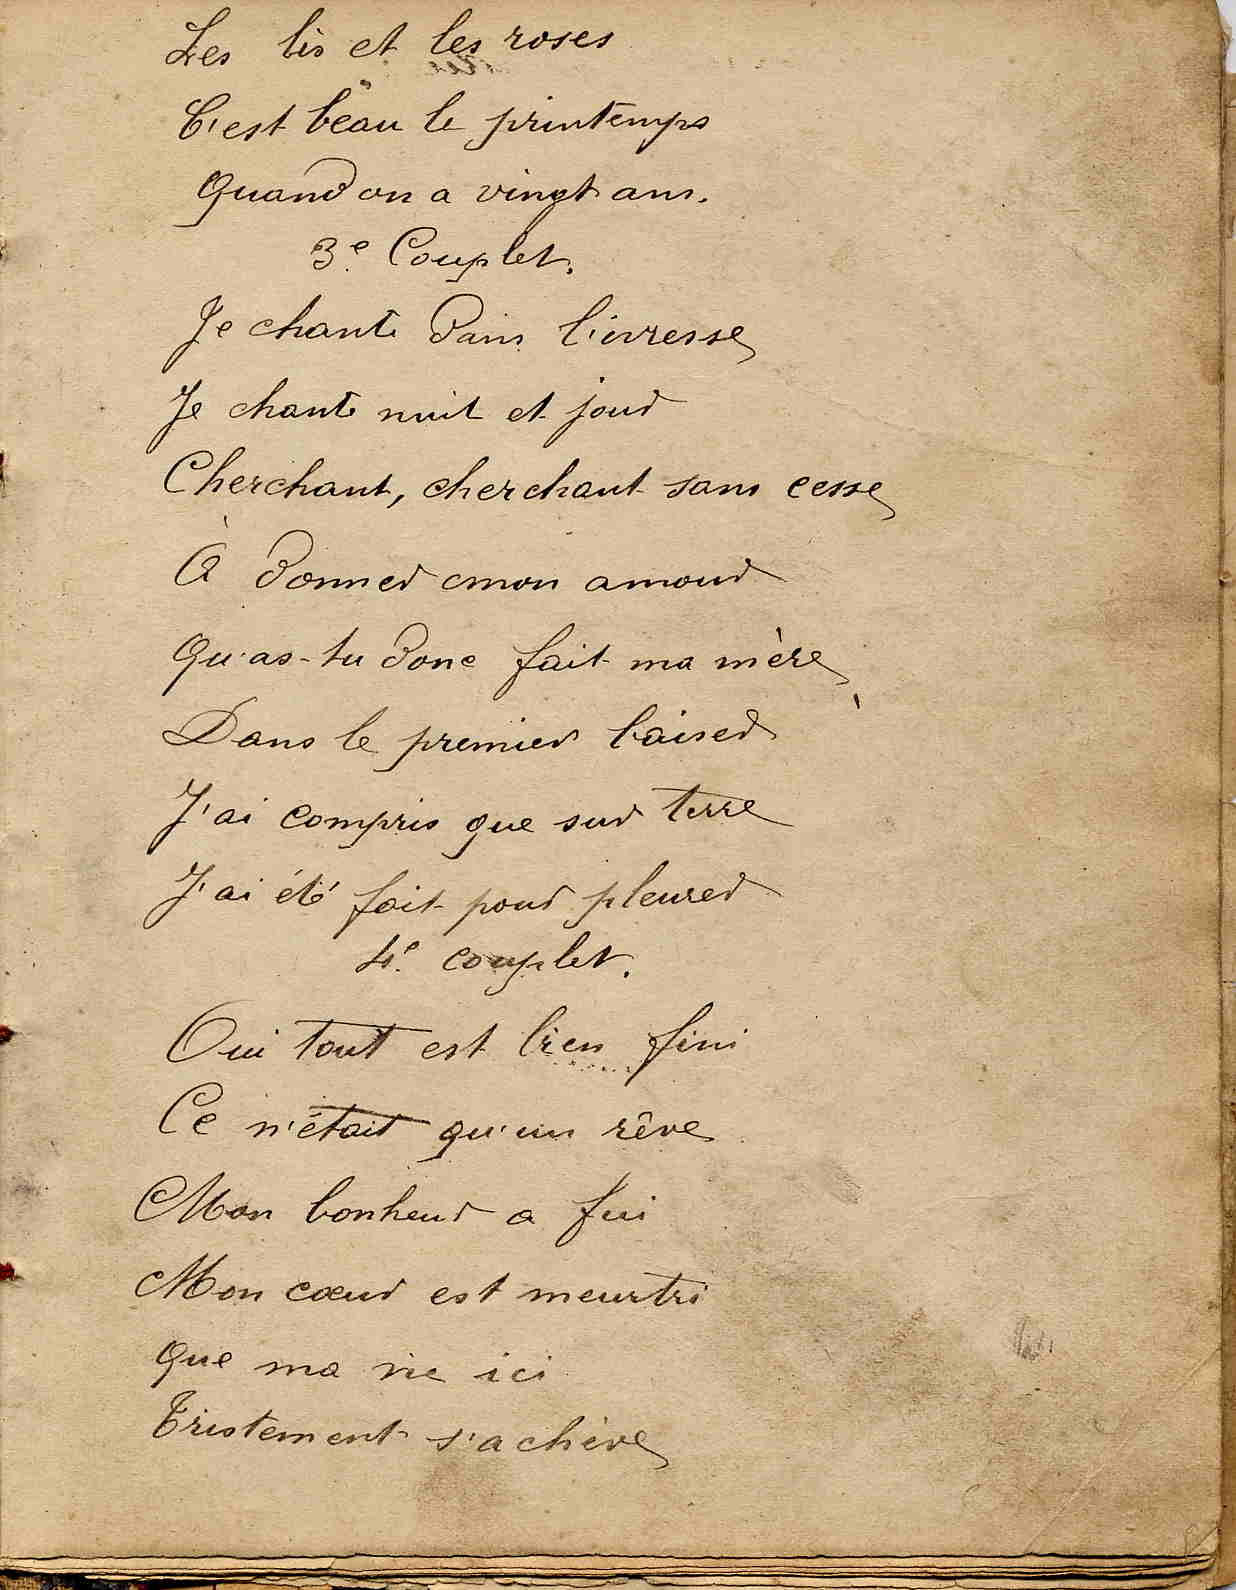 Les lis et les roses
C'est beau le printemps
Quand on a vingt ans.
3e Couplet.
Je chante dans l'ivresse
Je chante nuit et jour
Cherchant, cherchant sans cesse
À donner mon amour
Qu'as-tu donc fait ma mère
Dans le premier baiser
J'ai compris que sur terre
J'ai été fait pour pleurer
4e couplet.
Oui tout est bien fini
Ce n'était qu'un rêve
Mon bonheur a fui
Mon cœur est meurtri
Que ma vie ici
Tristement s'achève